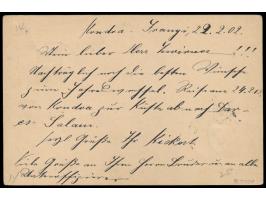 Kondoa-Irangi, 22.2.02.
Mein lieber Herr !!!
Nachträglich noch die besten Wünsche
zum Jahreswechsel. Reise am 24.2.
von Kondoa zur Küste ab nach Dar-
es-Salam.
Herzl. Grüße Ihr
Viele Grüße an Ihren Herrn Bruder u. an alle
Unteroffiziere